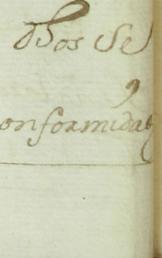 dhos Se
onformidad